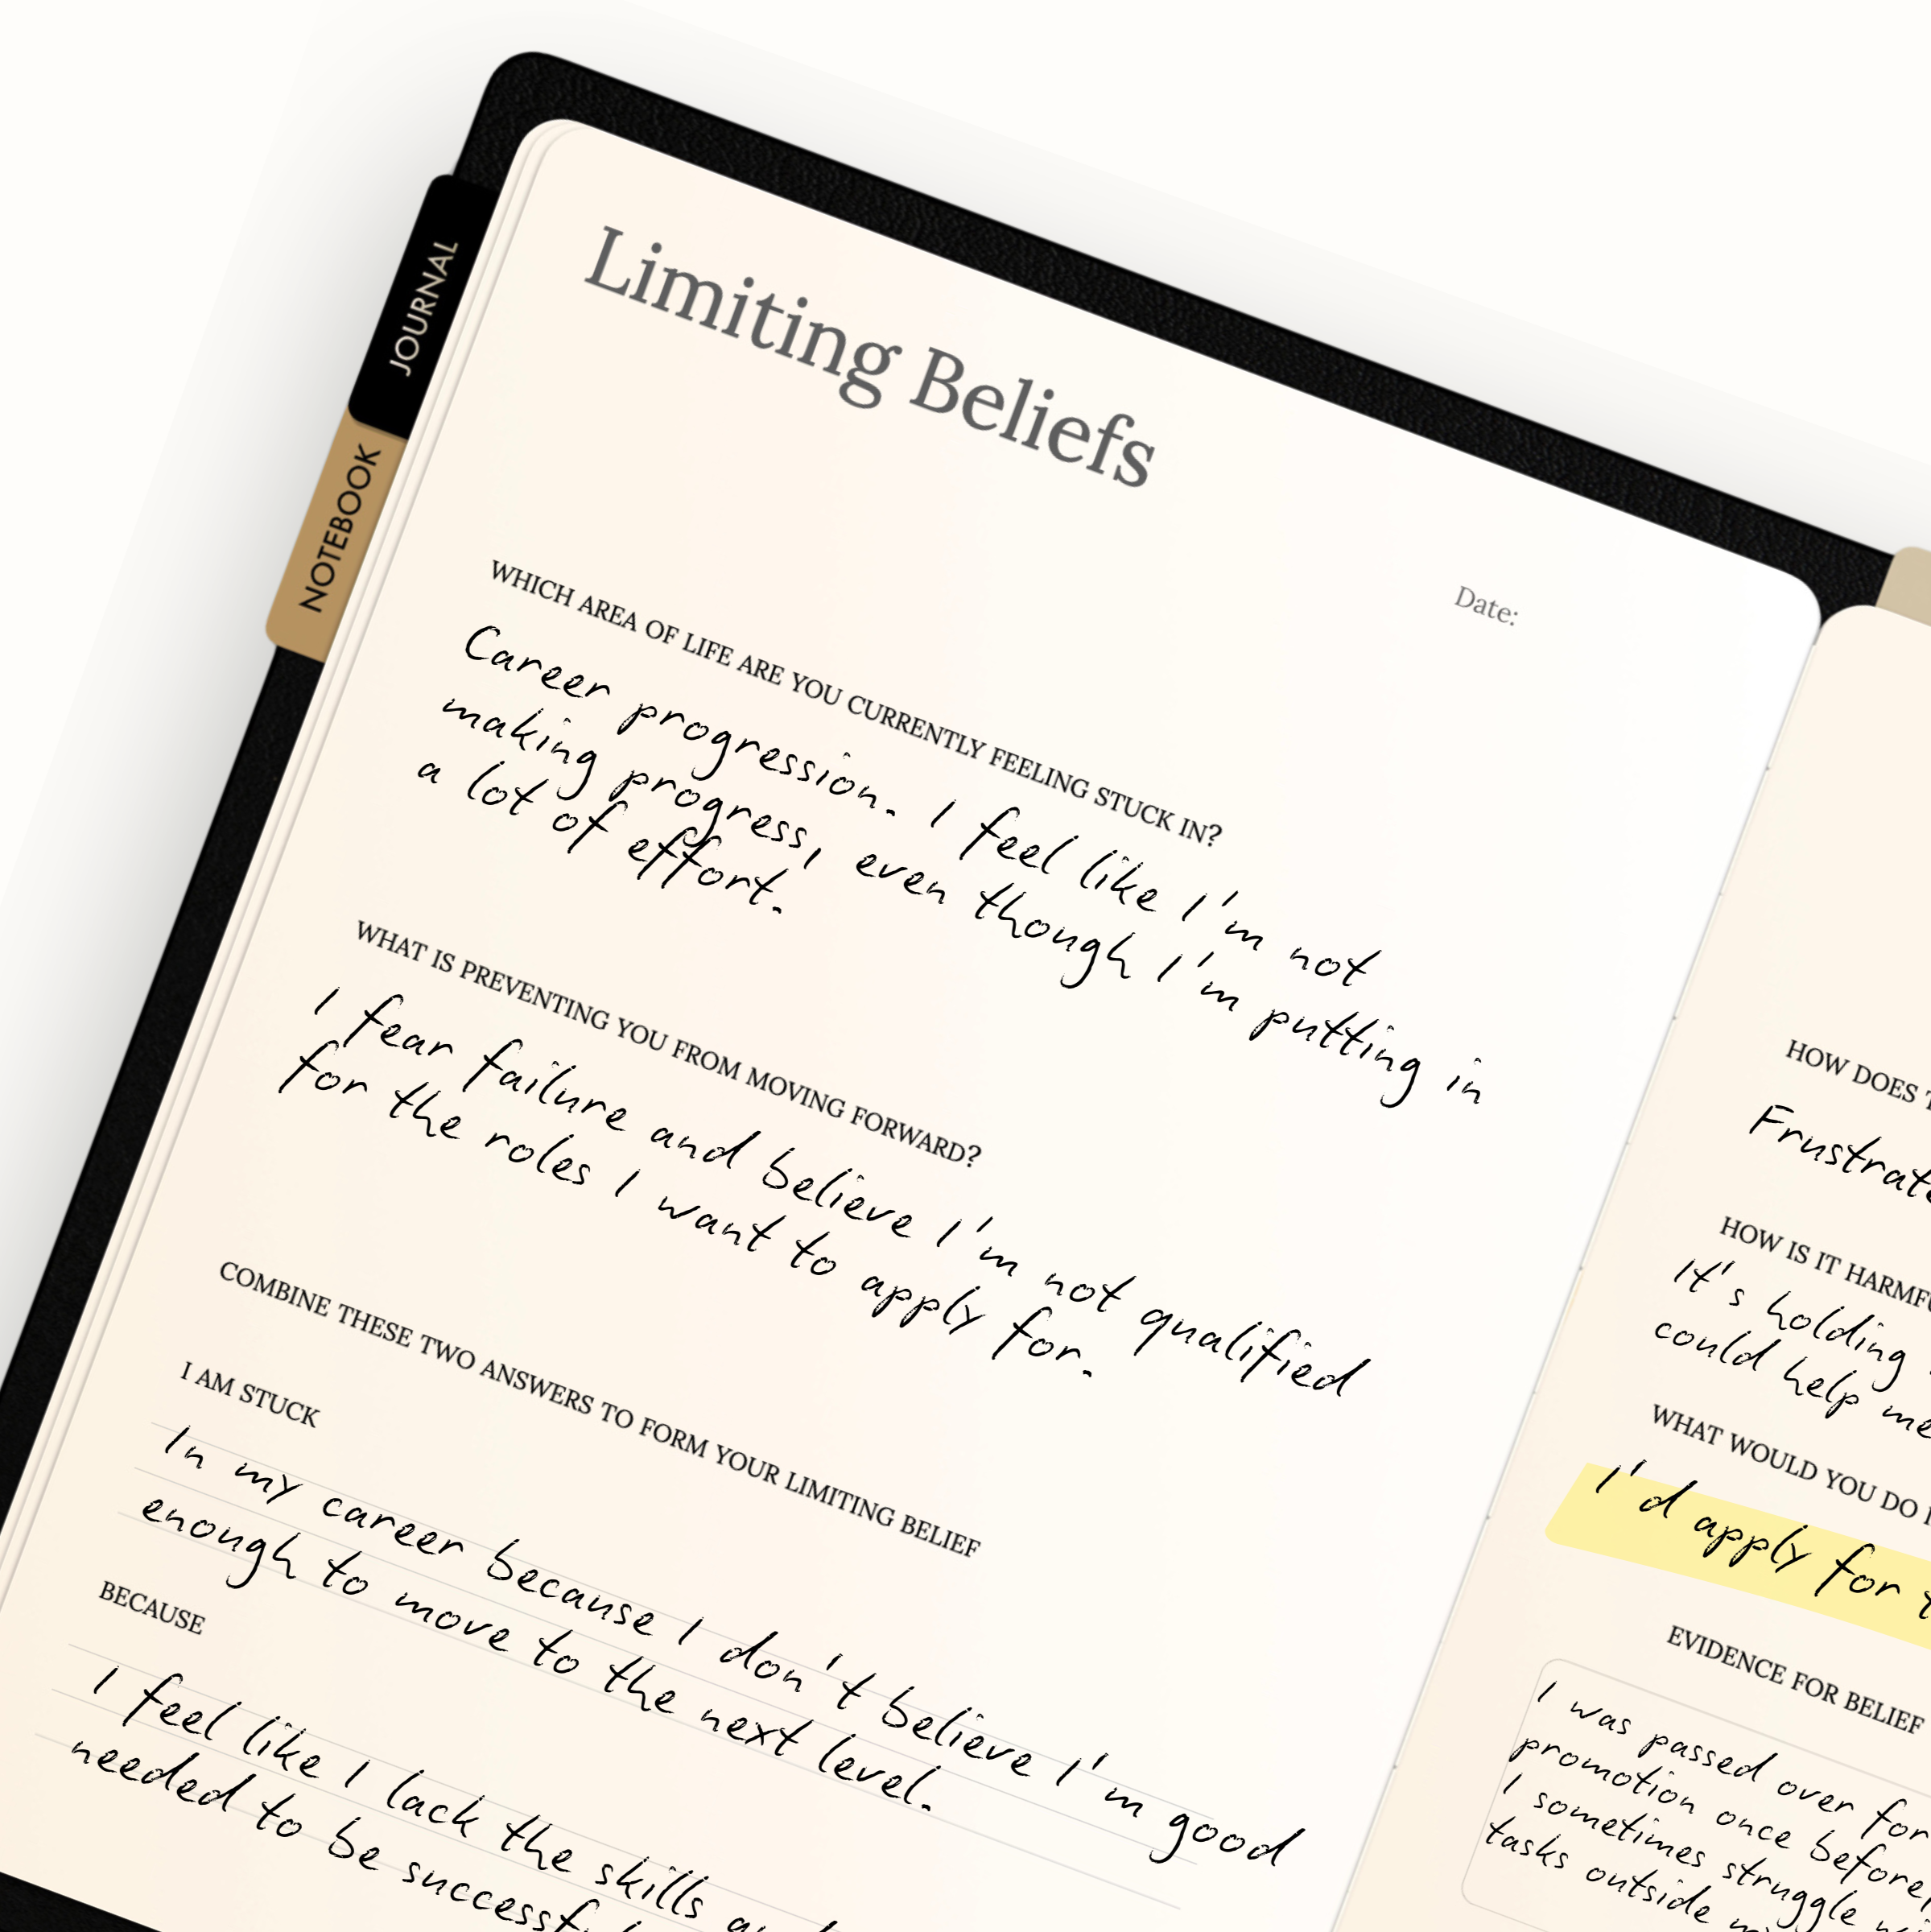 JOURNAL
NOTEBOOK
Limiting Beliefs
Date:
WHICH AREA OF LIFE ARE YOU CURRENTLY FEELING STUCK IN?
Career progression. I feel like I'm not
making progress, even though I'm putting in
a lot of effort.
WHAT IS PREVENTING YOU FROM MOVING FORWARD?
I fear failure and believe I'm not qualified
for the roles I want to apply for.
COMBINE THESE TWO ANSWERS TO FORM YOUR LIMITING BELIEF
I AM STUCK
In my career because I don't believe I'm good
enough to move to the next level.
BECAUSE
I feel like I lack the skills
needed to be
HOW DOES
HOW IS IT
It's holding
could help me
WHAT WOULD YOU DO
I'd apply for
EVIDENCE FOR BELIEF
I was passed over for
promotion once before
I sometimes struggle
tasks outside